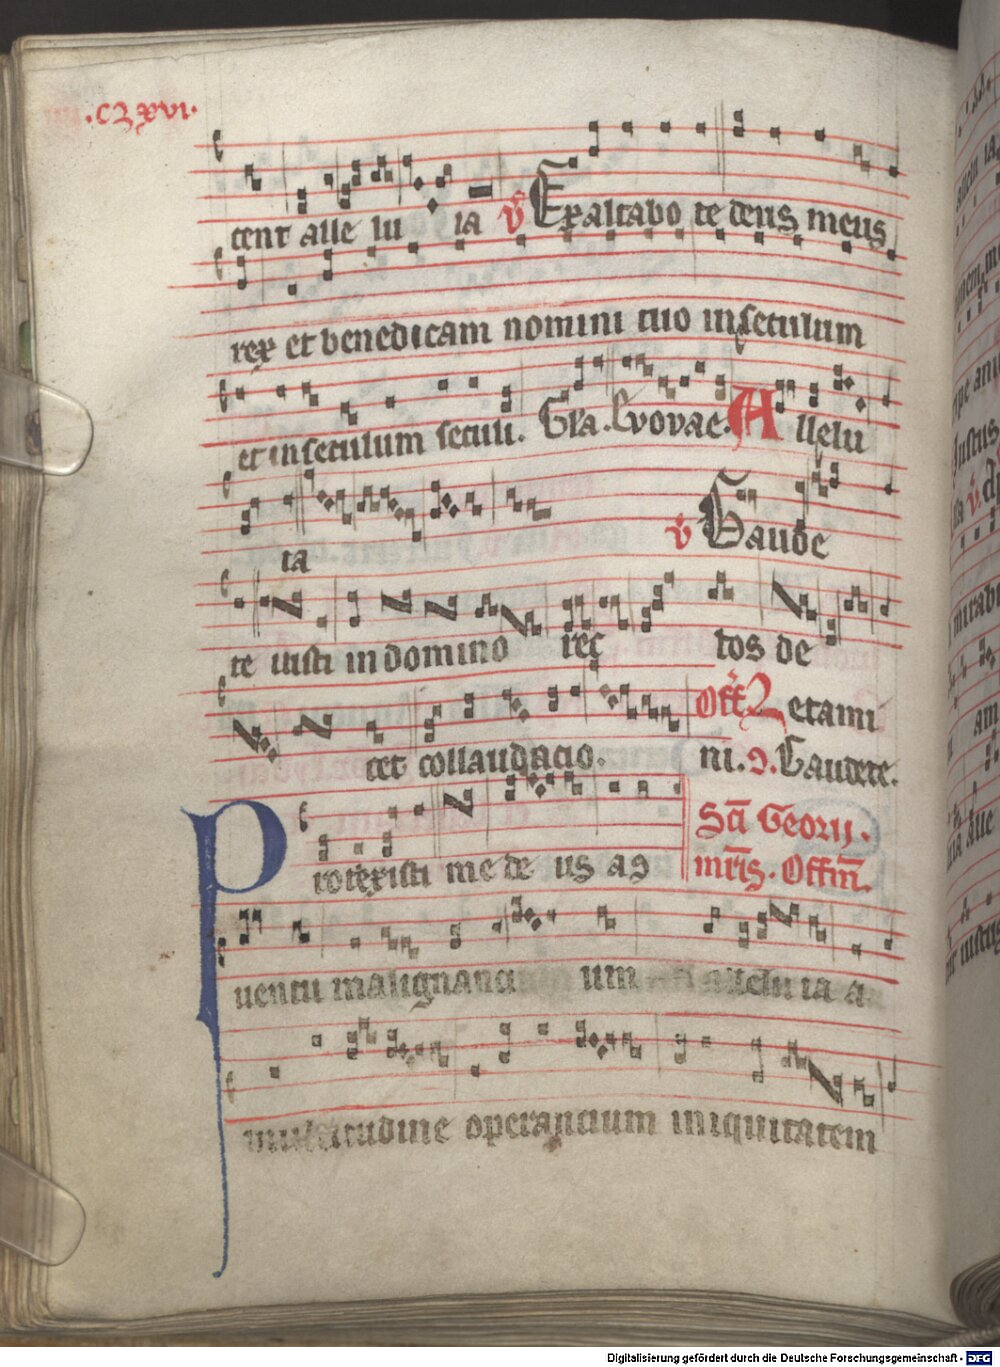 .CLXVI.
cent alle lu ia V Exaltabo te deus meus
rex et benedicam nomini tuo in seculum
et in seculum seculi. Gl'a. Evovae. A llelu
ia V Gaude
te iusti in domino rec tos de
Off. Letami
cet collaudacio. ni. Gaudete.
Protexisti me de us a 9
Sci Georii.
mris. Offm.
uentu malignanci um alleluia a
multitudine operancium iniquitatem
Digitalisierung gefördert durch die Deutsche Forschungsgemeinschaft - DFG